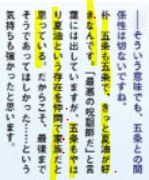 ――そういう意味でも、五条との関
係性は切ないですね。
朴　五条も五条で、きっと夏油が好
きなんです。「最悪の呪詛師だ」と言
葉には出していますが、五条もやは
り夏油という存在を仲間で家族だと
思っている。だからこそ、最後まで
そうであってほしかった……という
気持ちも強かったと思います。